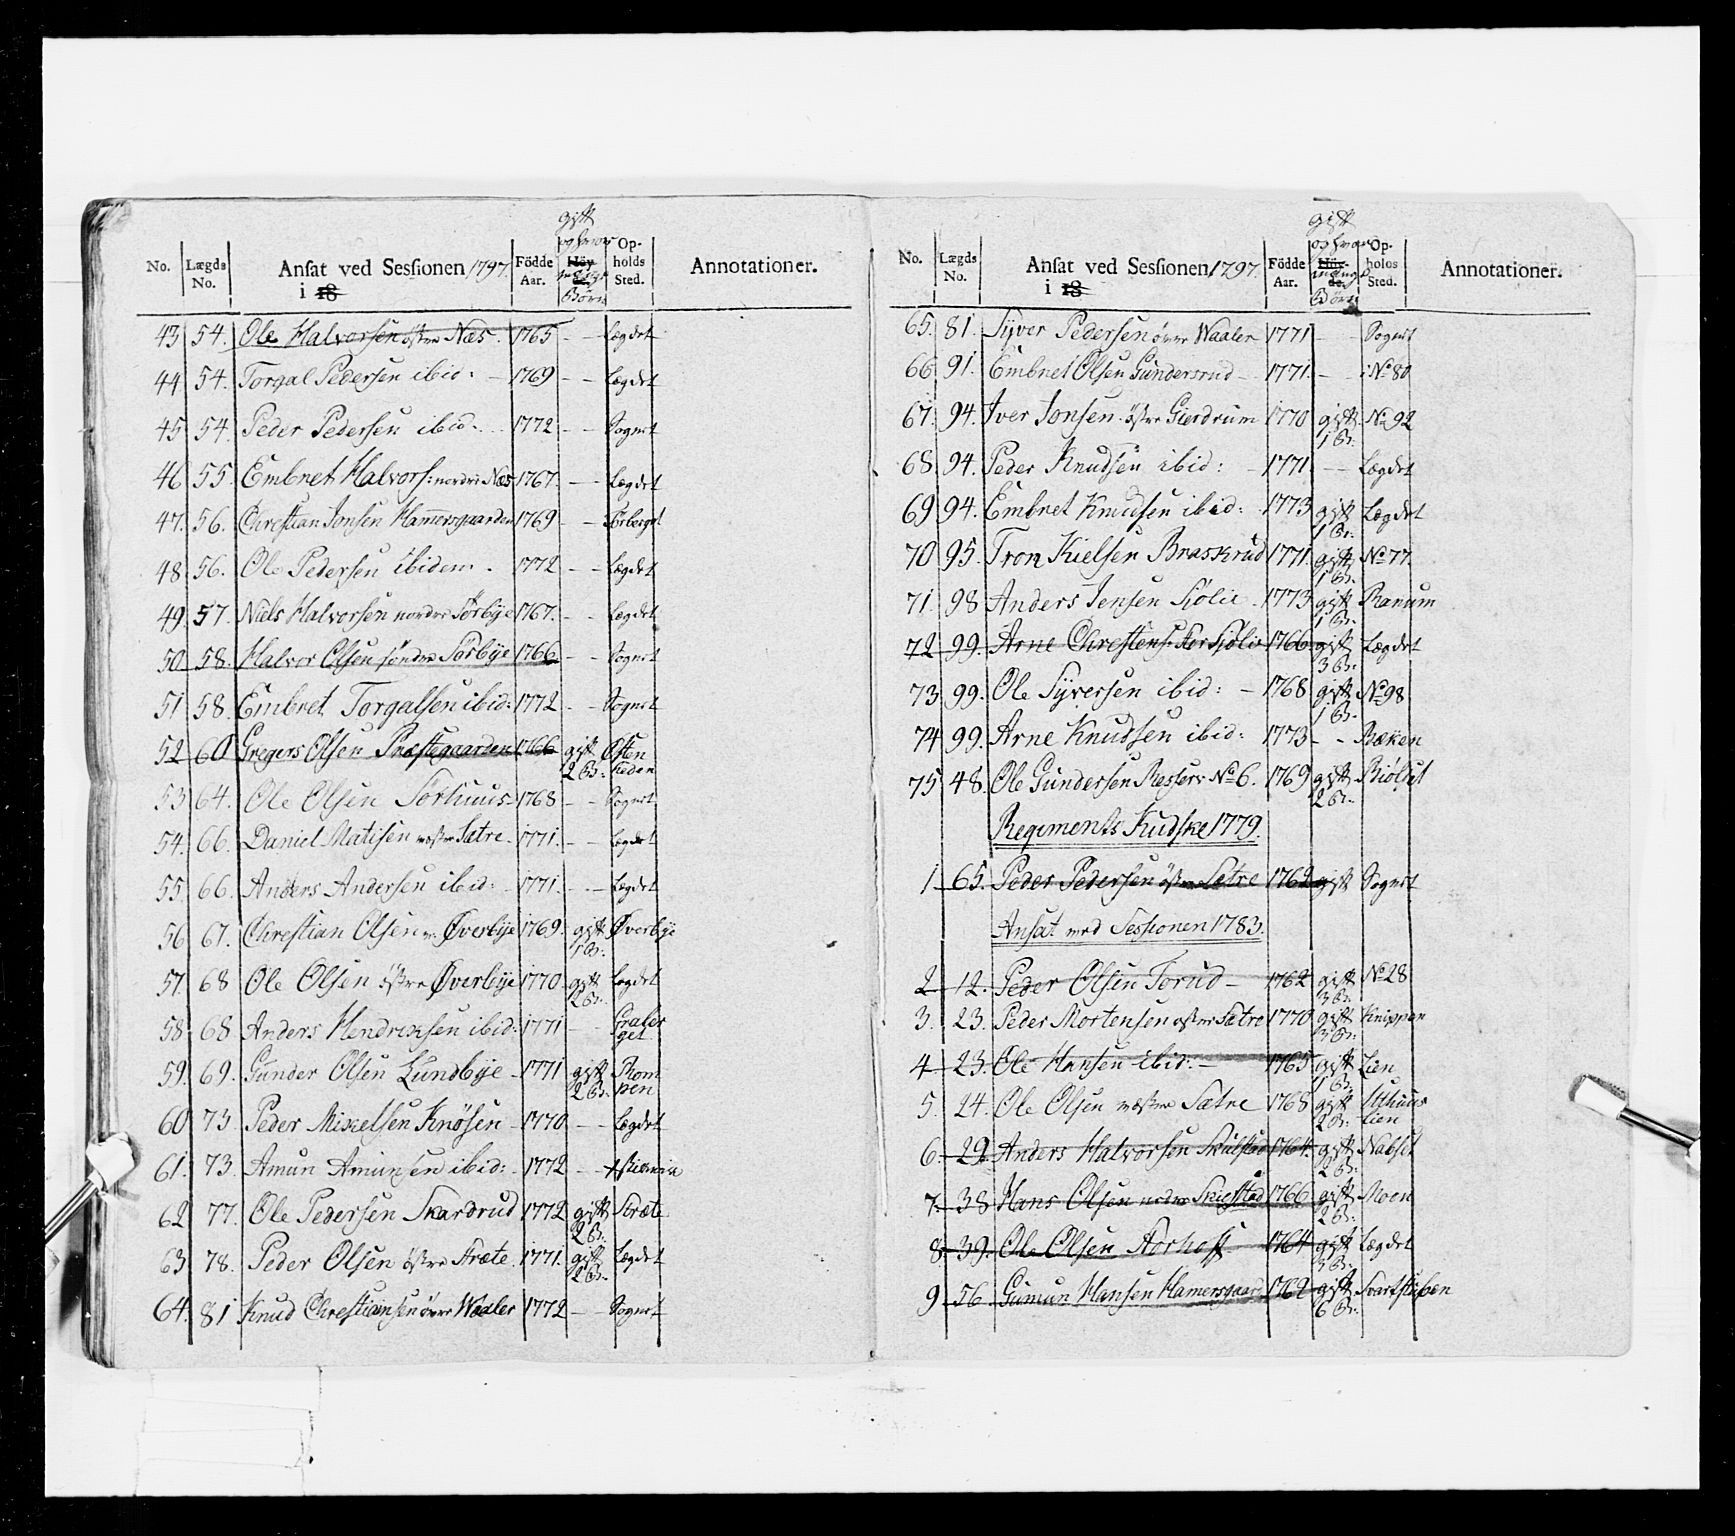 gift
og hvor
No. Lægds No. Ansat ved Sessionen 1797. i 18 Födde Aar. Höyde. mange Börn Opholds Sted. Annotationer.
43 54. Ole Halvorsen östre Næs. 1765 - - Lægdet
44 54. Torgal Pedersen ibid: - 1769 - - Lægdet
45 54. Peder Pedersen ibid. 1772 - - Sognet
46 55. Embret Halvors: nordre Næs 1767. - - Lægdet
47. 56. Christian Jonsen Hamersgaarden 1769 - - Sörberget
48 56. Ole Pedersen ibidem. 1772 - - Lægdet
49. 57. Niels Halvorsen nordre Sörbÿe 1767. - - Lægdet
50 58. Halvor Olsen söndre Sörbÿe 1766 - - Sognet
51 58. Embret Torgalsen ibid: 1772 - - Sognet
52 60 Gregers Olsen Præstegaarden 1766 gift 2 B. Östen heden
53 64. Ole Olsen Sorhuus 1768 - - Sognet
54. 66. Daniel Matisen vestre Sætre. 1771. - - Lægdet
55. 66. Anders Andersen ibid: 1771. - - Lægdet
56 67. Christian Olsen v. Øverbÿe 1769. gift 1 B. Øverbÿe
57. 68 Ole Olsen östre Øverbÿe 1770 gift 2 B. Lægdet
58. 68 Anders Hendrichsen ibid: 1771 - - Graber get
59. 69. Gunder Olsen Lundbÿe - 1771 gift 2 B. Rom pen
60 73. Peder Mikelsen Knösen - 1770 - - Lægdet
61. 73. Amun Amunsen ibid: 1772 - -
62 77. Ole Pedersen Skardrud 1772 gift 2 B. Stræte
63 78. Peder Olsen östre Stræte. 1771. gift 2 B. Lægdet
64. 81 Knud Christiansen övre Waaler 1772 - - Sognet
gift
og hvor
No. Lægds No. Ansat ved Sessionen 1797. i 18 Födde Aar. Höyde. mange Börn Opholds Sted. Annotationer.
65. 81. Syver Pedersen övre Waaler 1771 - - Sognet
66 91. Embret Olsen Gundersrud - 1771. - - No 80
67. 94. Iver Jonsen östre Gierdrum 1770 gift 1 B. No 92
68. 94. Peder Knudsen ibid: - 1771 - - Lægdet
69 94. Embret Knudsen ibid: 1773 gift 1 B. Lægdet
70 95. Tron Kielsen Braskrud 1771. gift 1 B. No 77.
71. 98 Anders Jensen Siölie 1773 gift 1 B. Ranum
72 99. Arne Christens: Siölie 1766 gift 3 B. Lægdet
73 99. Ole Syversen ibid: - 1768 gift 1 B. No 98
74 99. Arne Knudsen ibid: 1773 - - Bæken
75 48. Ole Gundersen Resserv No 6. 1769 gift 2 B. Biölset
Regiments Kudske 1779.
1 65. Peder Pedersen östre Sætre 1762 gift Sognet
Ansat ved Sessionen 1783.
2 12. Peder Olsen Torud - 1762 gift 3 B. No 28
3. 23. Peder Mortensen östre Sætre 1770 gift 3 B. Knippen
4 23. Ole Hansen ibid: - 1765 gift 1 B. Lien
5. 24. Ole Olsen vestre Sætre 1768 gift 2 B. lien
6. 29. Anders Halvorsen Skulstad 1764. gift 2 B. Nabset
7. 38 Hans Olsen nedre Skulstad 1766 gift 2 B. Moen
8 39. Ole Olsen Aorhoff 1764 gift 3 B. Lægdet
9 56. Gumun Hansen Hamersgaar 1762 gift 6 B. Svartstuben